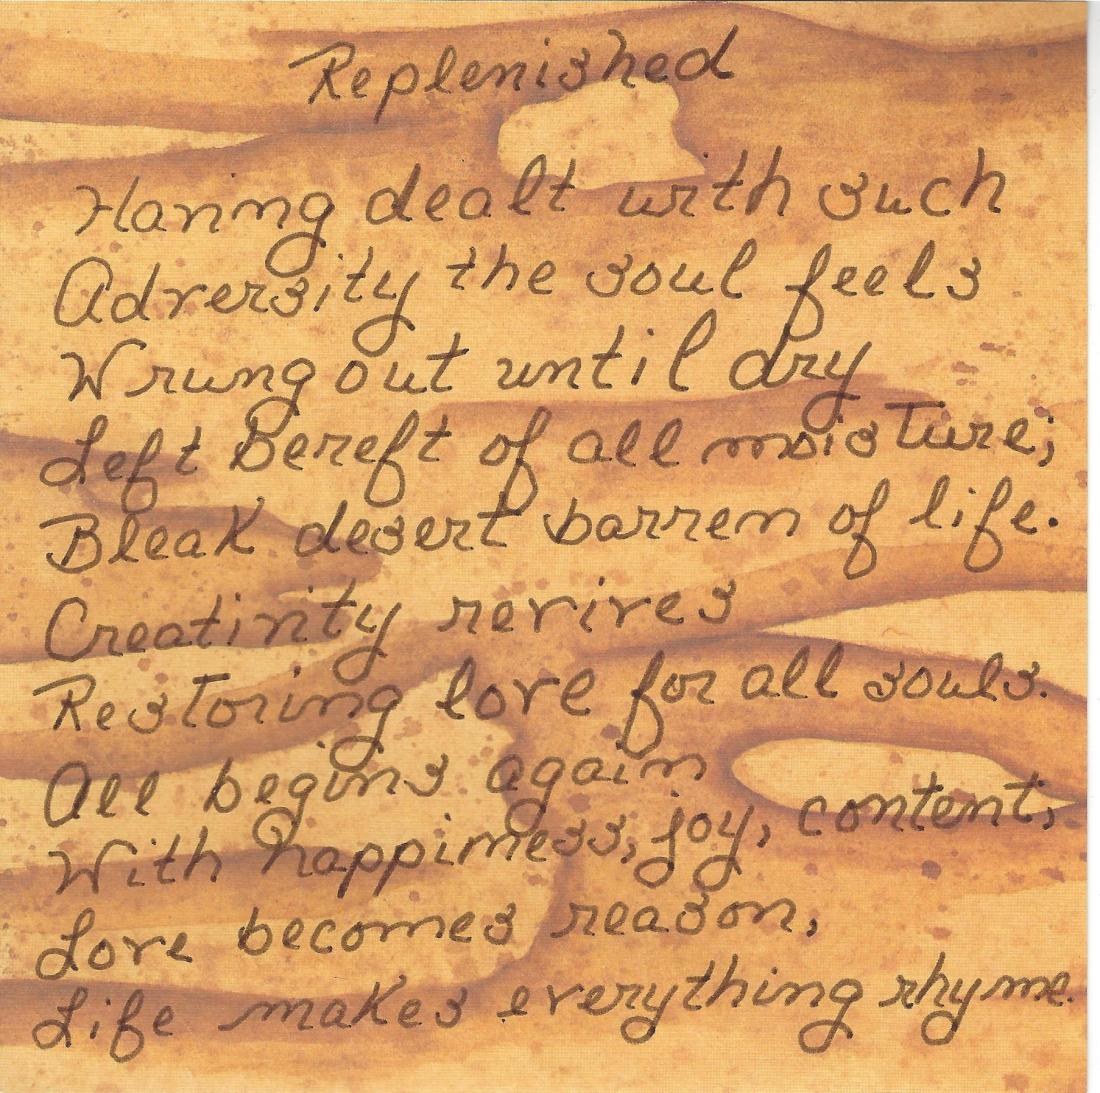 Replenished
Having dealt with such
Adversity the soul feels
Wrung out until dry
Left bereft of all moisture;
Bleak desert barren of life.
Creativity revives
Restoring love for all souls.
All begins again
With happiness, joy, content,
Love becomes reason,
Life makes everything rhyme.